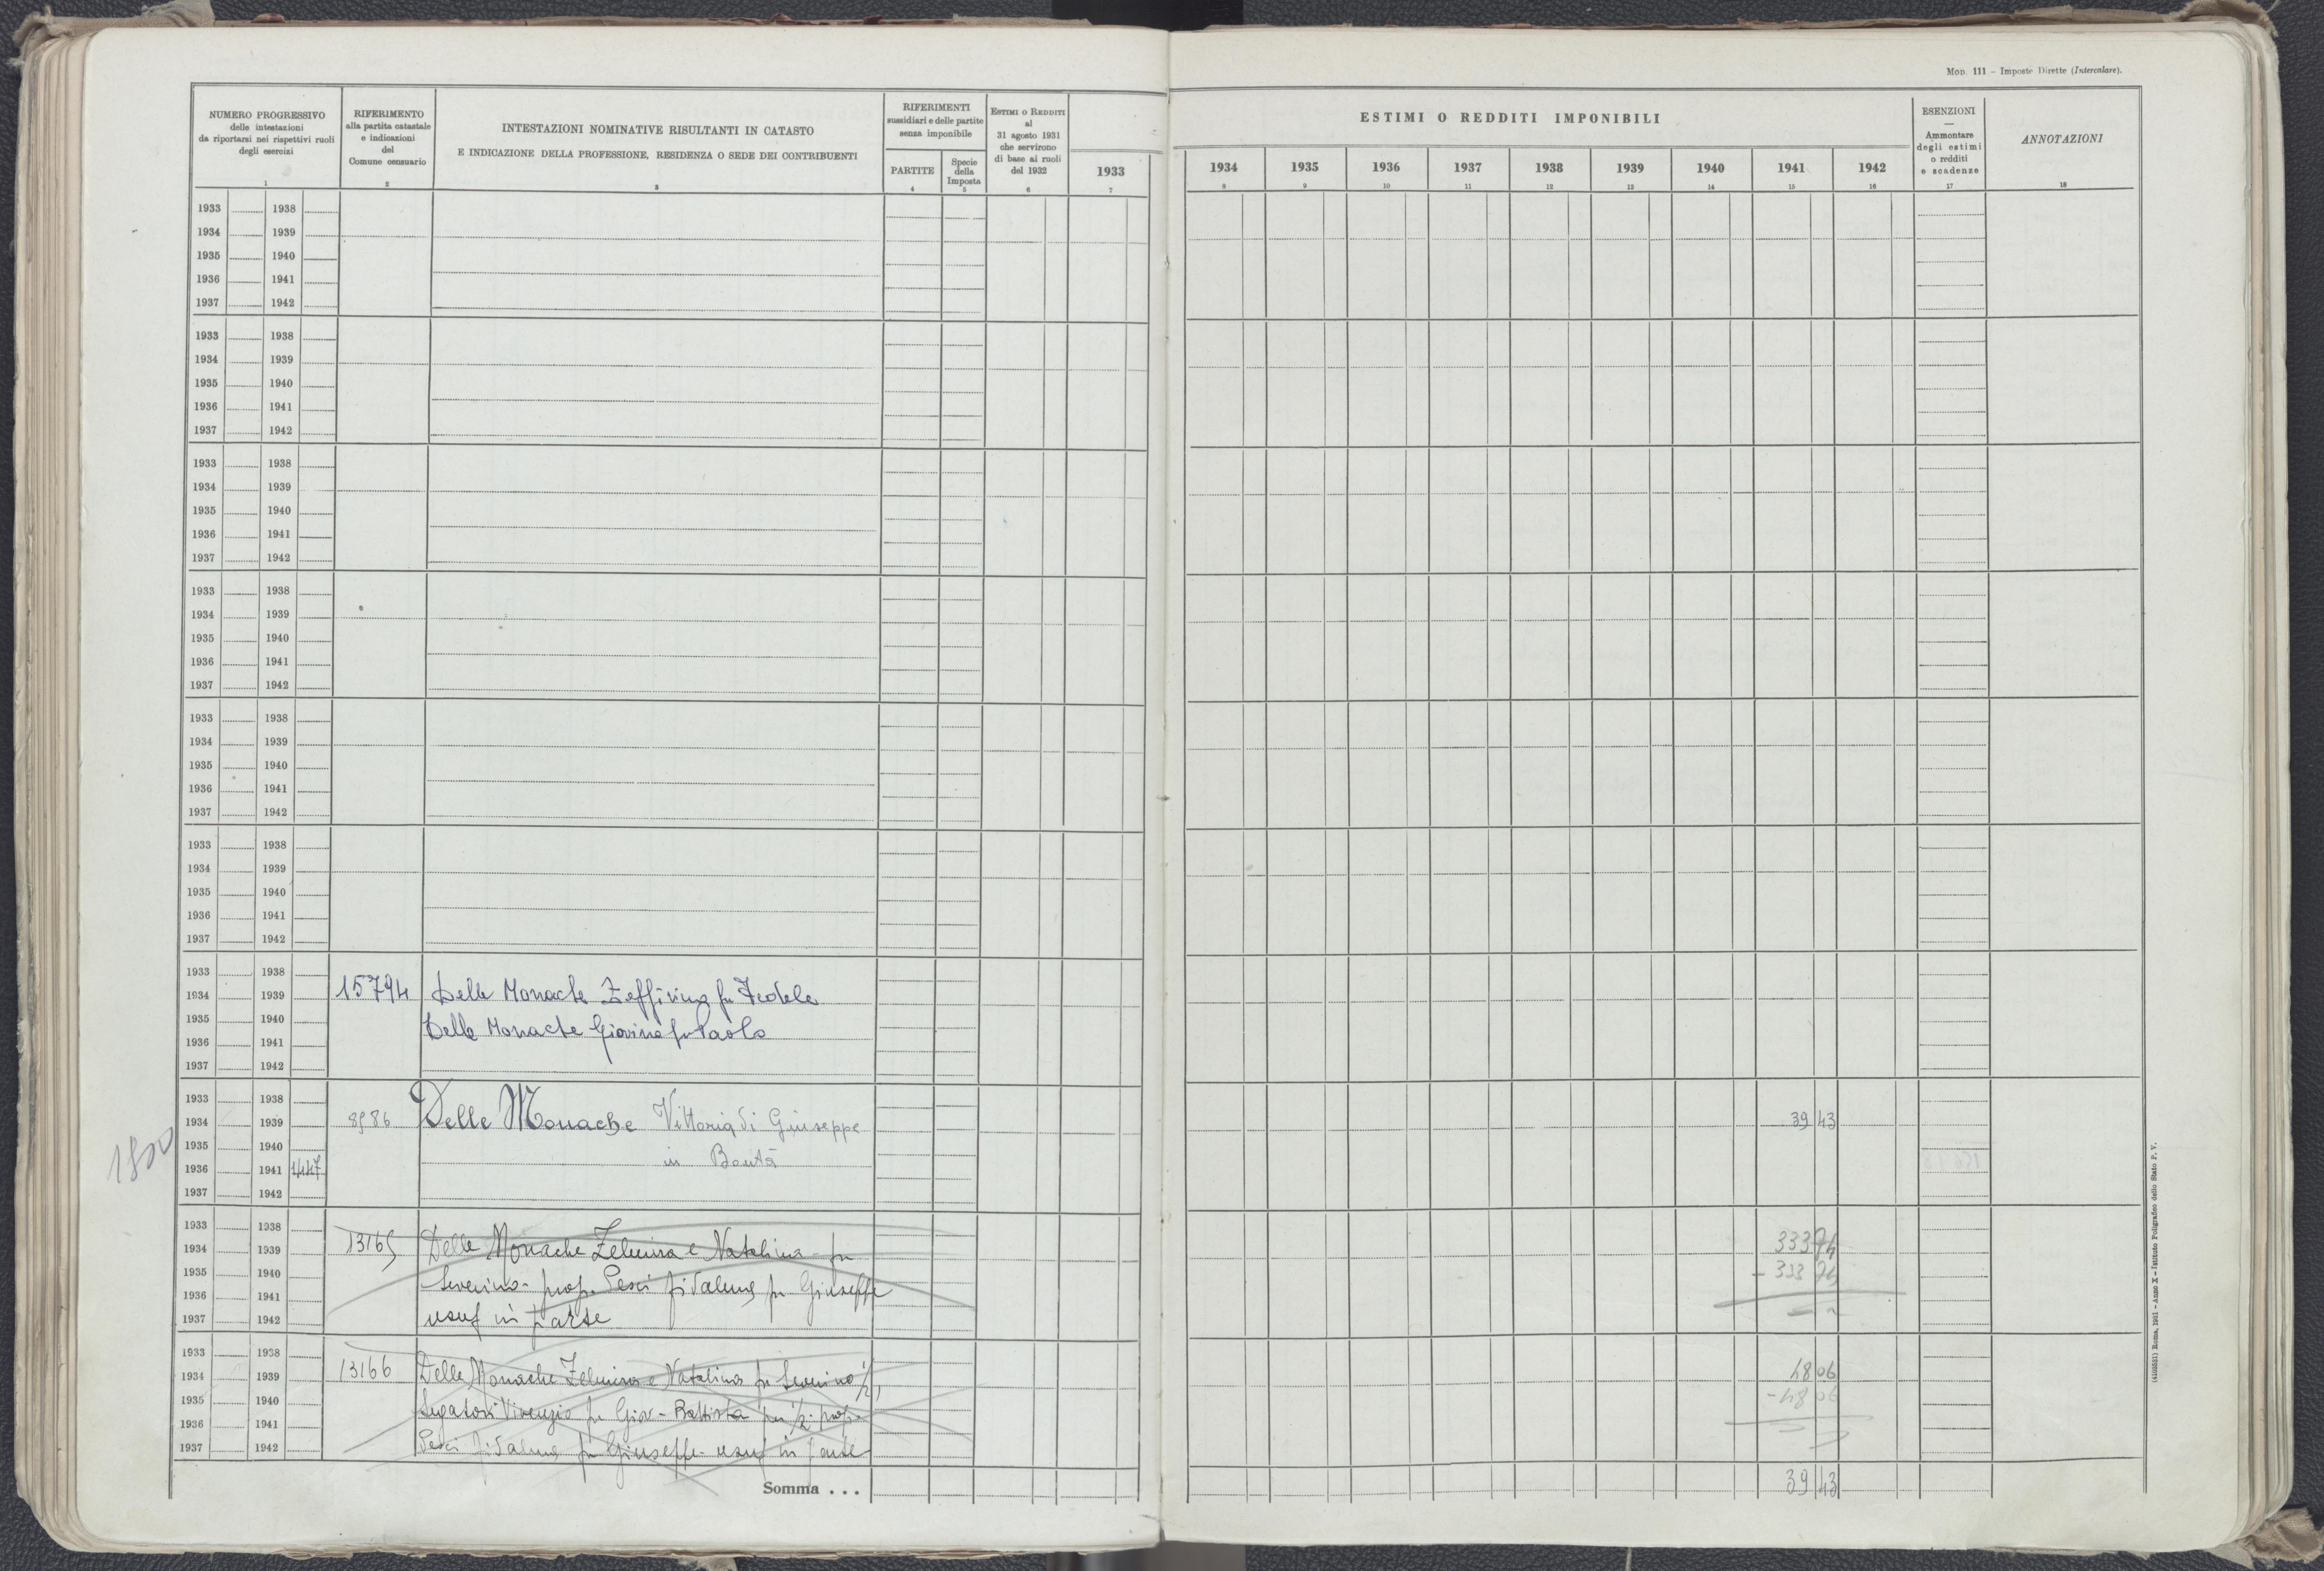 Mod. 111 – Imposte Dirette (Intercalare).
NUMERO PROGRESSIVO
delle intestazioni
da riportarsi nei rispettivi ruoli
degli esercizi
1
RIFERIMENTO
alla partita catastale
e indicazioni
del
Comune censuario
2
INTESTAZIONI NOMINATIVE RISULTANTI IN CATASTO
E INDICAZIONE DELLA PROFESSIONE, RESIDENZA O SEDE DEI CONTRIBUENTI
3
RIFERIMENTI
sussidiari e delle partite
senza imponibile
PARTITE
4
Specie
della
Imposta
5
ESTIMI O REDDITI
al
31 agosto 1931
che servirono
di base ai ruoli
del 1932
6
1933
7
ESTIMI O REDDITI IMPONIBILI
1934 1935 1936 1937 1938 1939 1940 1941 1942
8 9 10 11 12 13 14 15 16
ESENZIONI
—
Ammontare
degli estimi
o redditi
e scadenze
17
ANNOTAZIONI
18
1933 1938
1934 1939
1935 1940
1936 1941
1937 1942
1933 1938
1934 1939
1935 1940
1936 1941
1937 1942
1933 1938
1934 1939
1935 1940
1936 1941
1937 1942
1933 1938
1934 1939
1935 1940
1936 1941
1937 1942
1933 1938
1934 1939
1935 1940
1936 1941
1937 1942
1933 1938
1934 1939
1935 1940
1936 1941
1937 1942
1933 1938
1934 1939 15794 Delle Monache Zeffirina fu Fedele
1935 1940 Delle Monache Giovina fu Paolo
1936 1941
1937 1942
1933 1938
1934 1939 8986 Delle Monache Vittoria di Giuseppe 39 43
1935 1940 in
1936 1941 1447
1937 1942
1933 1938
1934 1939 13165 Delle Monache Zelmira e Natalina fu 333 74
1935 1940 Severino - prop. Pesci Fidalma fu Giuseppe - 333 74
1936 1941
1937 1942 usuf in parte
1933 1938
1934 1939 13166 Delle Monache Zelmira e Natalina fu Severino 1/2, 48 06
1935 1940 Vincenzio fu Giov-Battista per 1/2 prop. - 48 06
1936 1941
1937 1942 Pesci Fidalma fu Giuseppe - usuf in parte
Somma . . . 39 43
(4169531) Roma, 1931 - Anno X - Istituto Poligrafico dello Stato P. V.